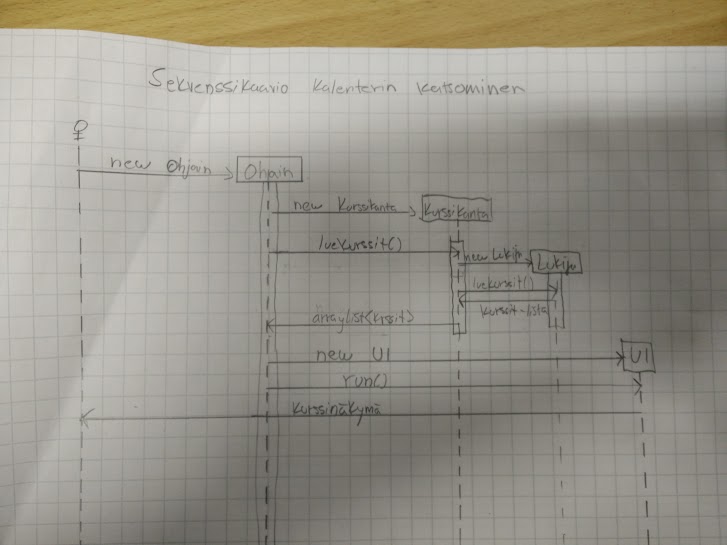 Sekvenssikaavio kalenterin katsominen
new Ohjain
Ohjain
new Kurssikanta
Kurssikanta
lueKurssit()
new Lukija
Lukija
lueKurssit()
kurssit-lista
arraylist<krssit>
new UI
UI
run()
Kurssinäkymä